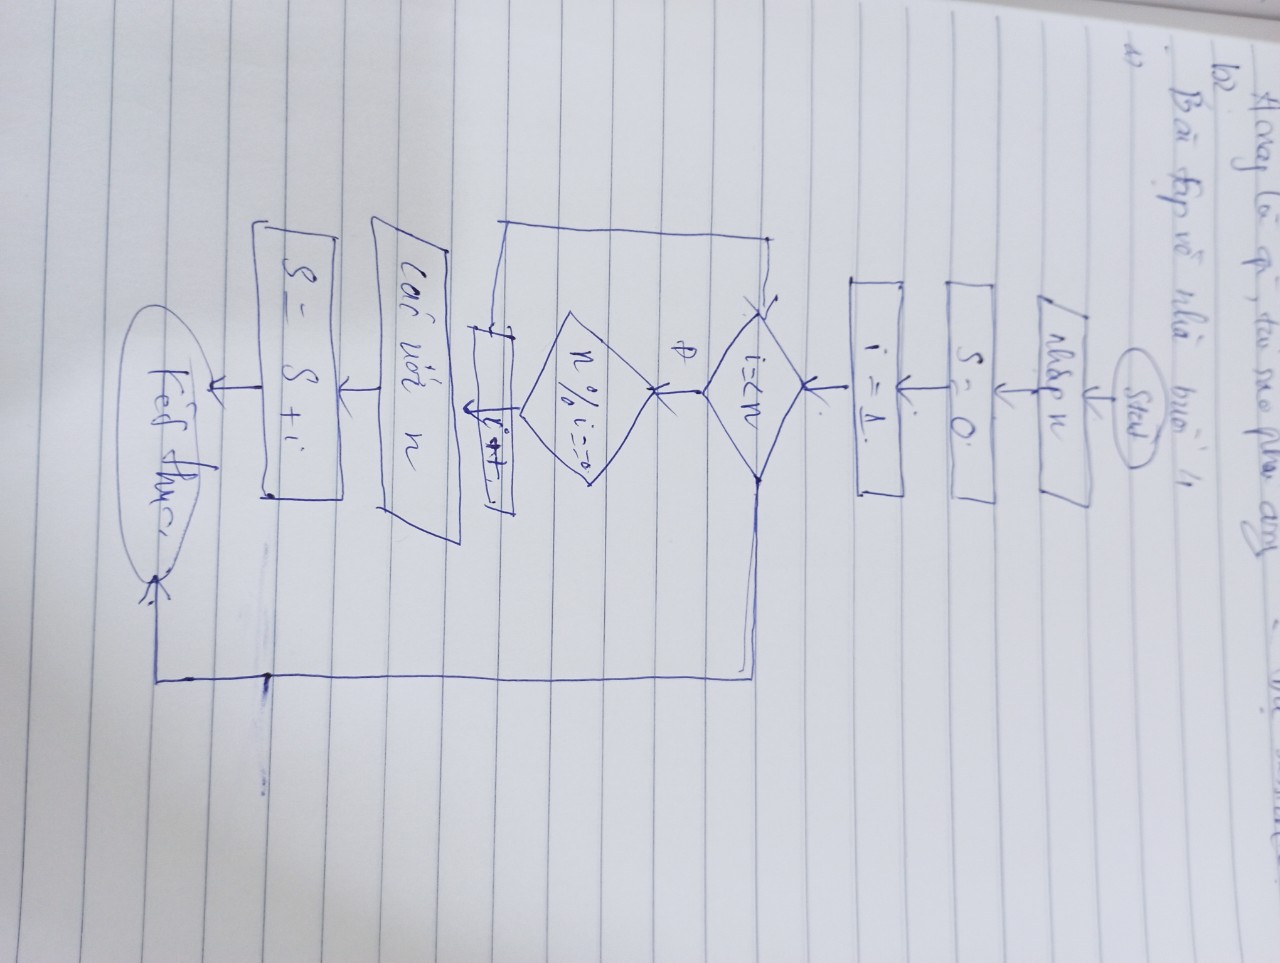 là gì, tại sao phải
b2.
Bài tập về nhà buổi 4
1)
Start
nhập n
S = 0
i = 1
i =< n
Đ
n % i == 0
i++
ước n
S = S + i
Kết thúc